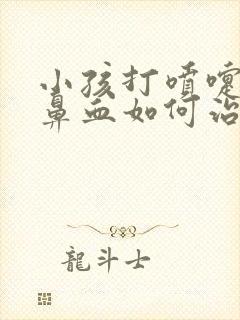 小孩打喷嚏
鼻血如何治
龍斗士